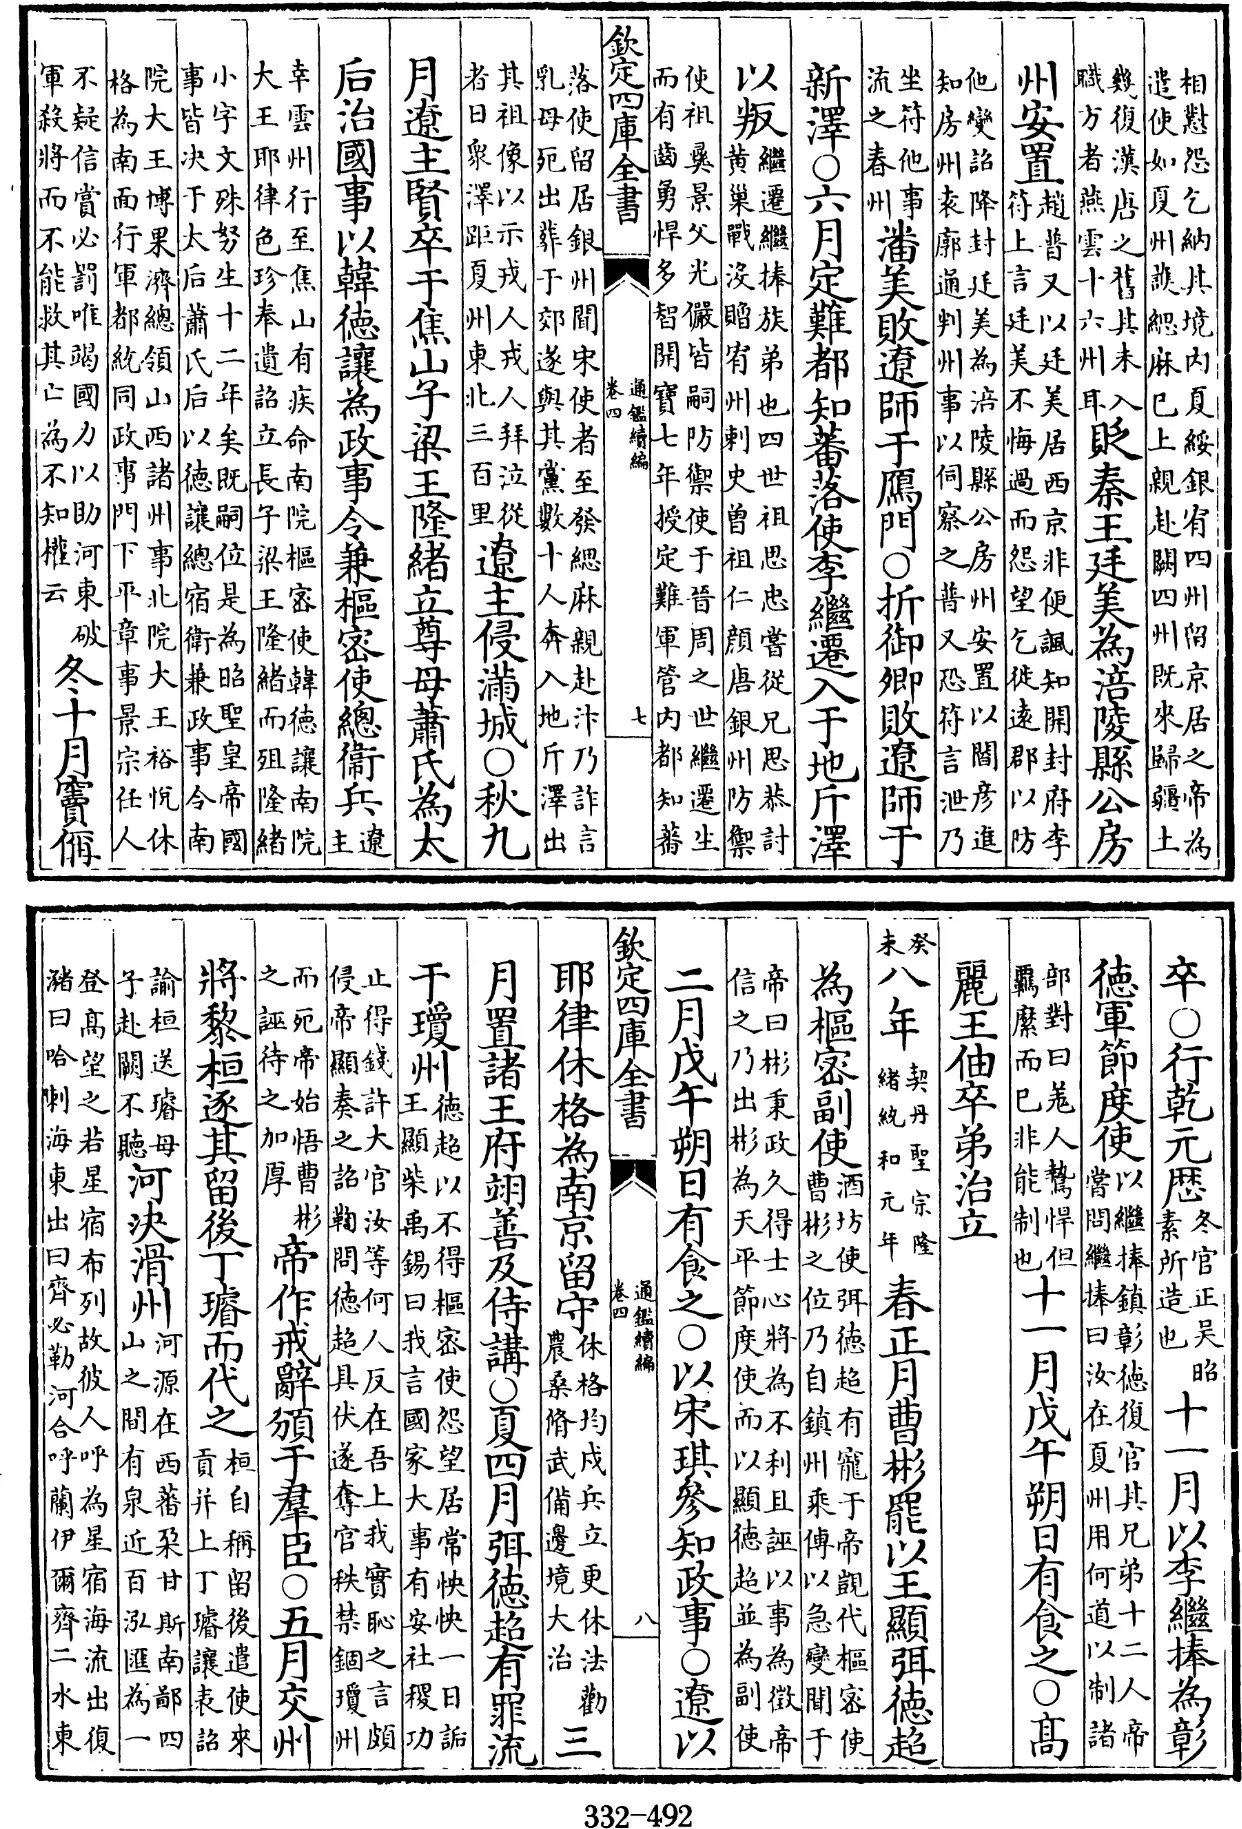 相懟怨乞納其境内夏綏銀宥四州留京居之帝為
遣使如夏州護緦麻已上親赴闕四州既來歸疆土
幾復漢唐之舊其未入
職方者燕雲十六州耳
貶秦王廷美為涪陵縣公房
州安置
趙普又以廷美居西京非便諷知開封府李
符上言廷美不悔過而怨望乞徙遠郡以防
他變詔降封廷美為涪陵縣公房州安置以閻彦進
知房州袁廓通判州事以伺察之普又恐符言泄乃
坐符他事
流之春州
潘美敗遼師于鴈門○折御卿敗遼師于
新澤○六月定難都知蕃落使李繼遷入于地斤澤
以叛
繼遷繼捧族弟也四世祖思忠嘗從兄思恭討
黄巢戰没贈宥州刺史曽祖仁顔唐銀州防禦
使祖彞景父光儼皆嗣防禦使于晉周之世繼遷生
而有齒勇悍多智開寶七年授定難軍管内都知蕃
欽定四庫全書
通鑑續編
卷四
七
落使留居銀州聞宋使者至發緦麻親赴汴乃詐言
乳母死出葬于郊遂與其黨數十人奔入地斤澤出
其祖像以示戎人戎人拜泣從
者日衆澤距夏州東北三百里
遼主侵滿城○秋九
月遼主賢卒于焦山子梁王隆緒立尊母蕭氏為太
后治國事以韓徳讓為政事令兼樞密使總衞兵
遼
主
幸雲州行至焦山有疾命南院樞密使韓徳讓南院
大王耶律色珍奉遺詔立長子梁王隆緒而殂隆緒
小字文殊努生十二年矣既嗣位是為昭聖皇帝國
事皆决于太后蕭氏后以徳讓總宿衛兼政事令南
院大王博果濟總領山西諸州事北院大王裕恱休
格為南面行軍都統同政事門下平章事景宗任人
不疑信賞必罰唯竭國力以助河東破
軍殺將而不能救其亡為不知權云
冬十月竇偁
卒○行乾元厯
冬官正吳昭
素所造也
十一月以李繼捧為彰
徳軍節度使
以繼捧鎮彰徳復官其兄弟十二人帝
嘗問繼捧曰汝在夏州用何道以制諸
部對曰羗人鷙悍但
羈縻而已非能制也
十一月戊午朔日有食之○髙
麗王伷卒弟治立
癸
未
八年
契丹聖宗隆
緒統和元年
春正月曹彬罷以王顯弭徳超
為樞密副使
酒坊使弭徳超有寵于帝覬代樞密使
曹彬之位乃自鎮州乘傳以急變聞于
帝曰彬秉政久得士心將為不利且誣以事為徴帝
信之乃出彬為天平節度使而以顯徳超並為副使
二月戊午朔日有食之○以宋琪參知政事○遼以
欽定四庫全書
通鑑續編
卷四
八
耶律休格為南京留守
休格均戍兵立更休法勸
農桑脩武備邊境大治
三
月置諸王府翊善及侍講○夏四月弭徳超有罪流
于瓊州
徳超以不得樞密使怨望居常怏怏一日詬
王顯柴禹錫曰我言國家大事有安社稷功
止得錢許大官汝等何人反在吾上我實恥之言頗
侵帝顯奏之詔鞫問徳超具伏遂奪官秩禁錮瓊州
而死帝始悟曹彬
之誣待之加厚
帝作戒辭頒于羣臣○五月交州
將黎桓逐其留後丁璿而代之
桓自稱留後遣使來
貢并上丁璿讓表詔
諭桓送璿母
子赴闕不聽
河決滑州
河源在西蕃朶甘斯南鄙四
山之間有泉近百泓匯為一
登髙望之若星宿布列故彼人呼為星宿海流出復
瀦曰哈喇海東出曰齊必勒河合呼蘭伊爾齊二水東
332-492